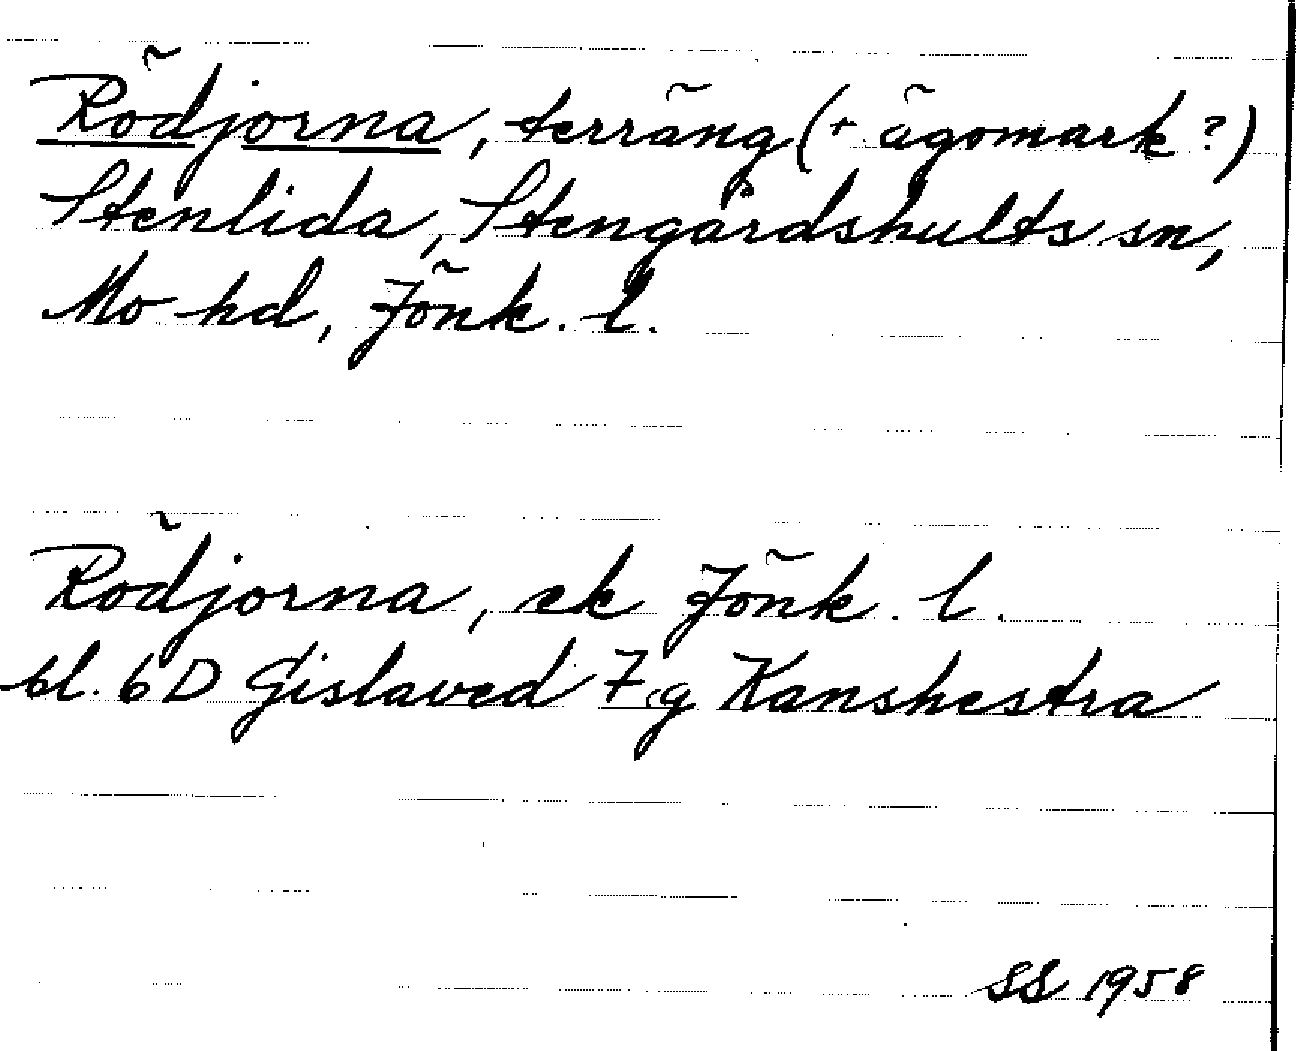 Rödjorna, terräng (+ ägomark?)
Stenlida, Stengårdshults sn,
Mo hd, Jönk. l.
Rödjorna, ek Jönk. l.
bl. 6 D Gislaved 7 g Kanshestra
SS 1958